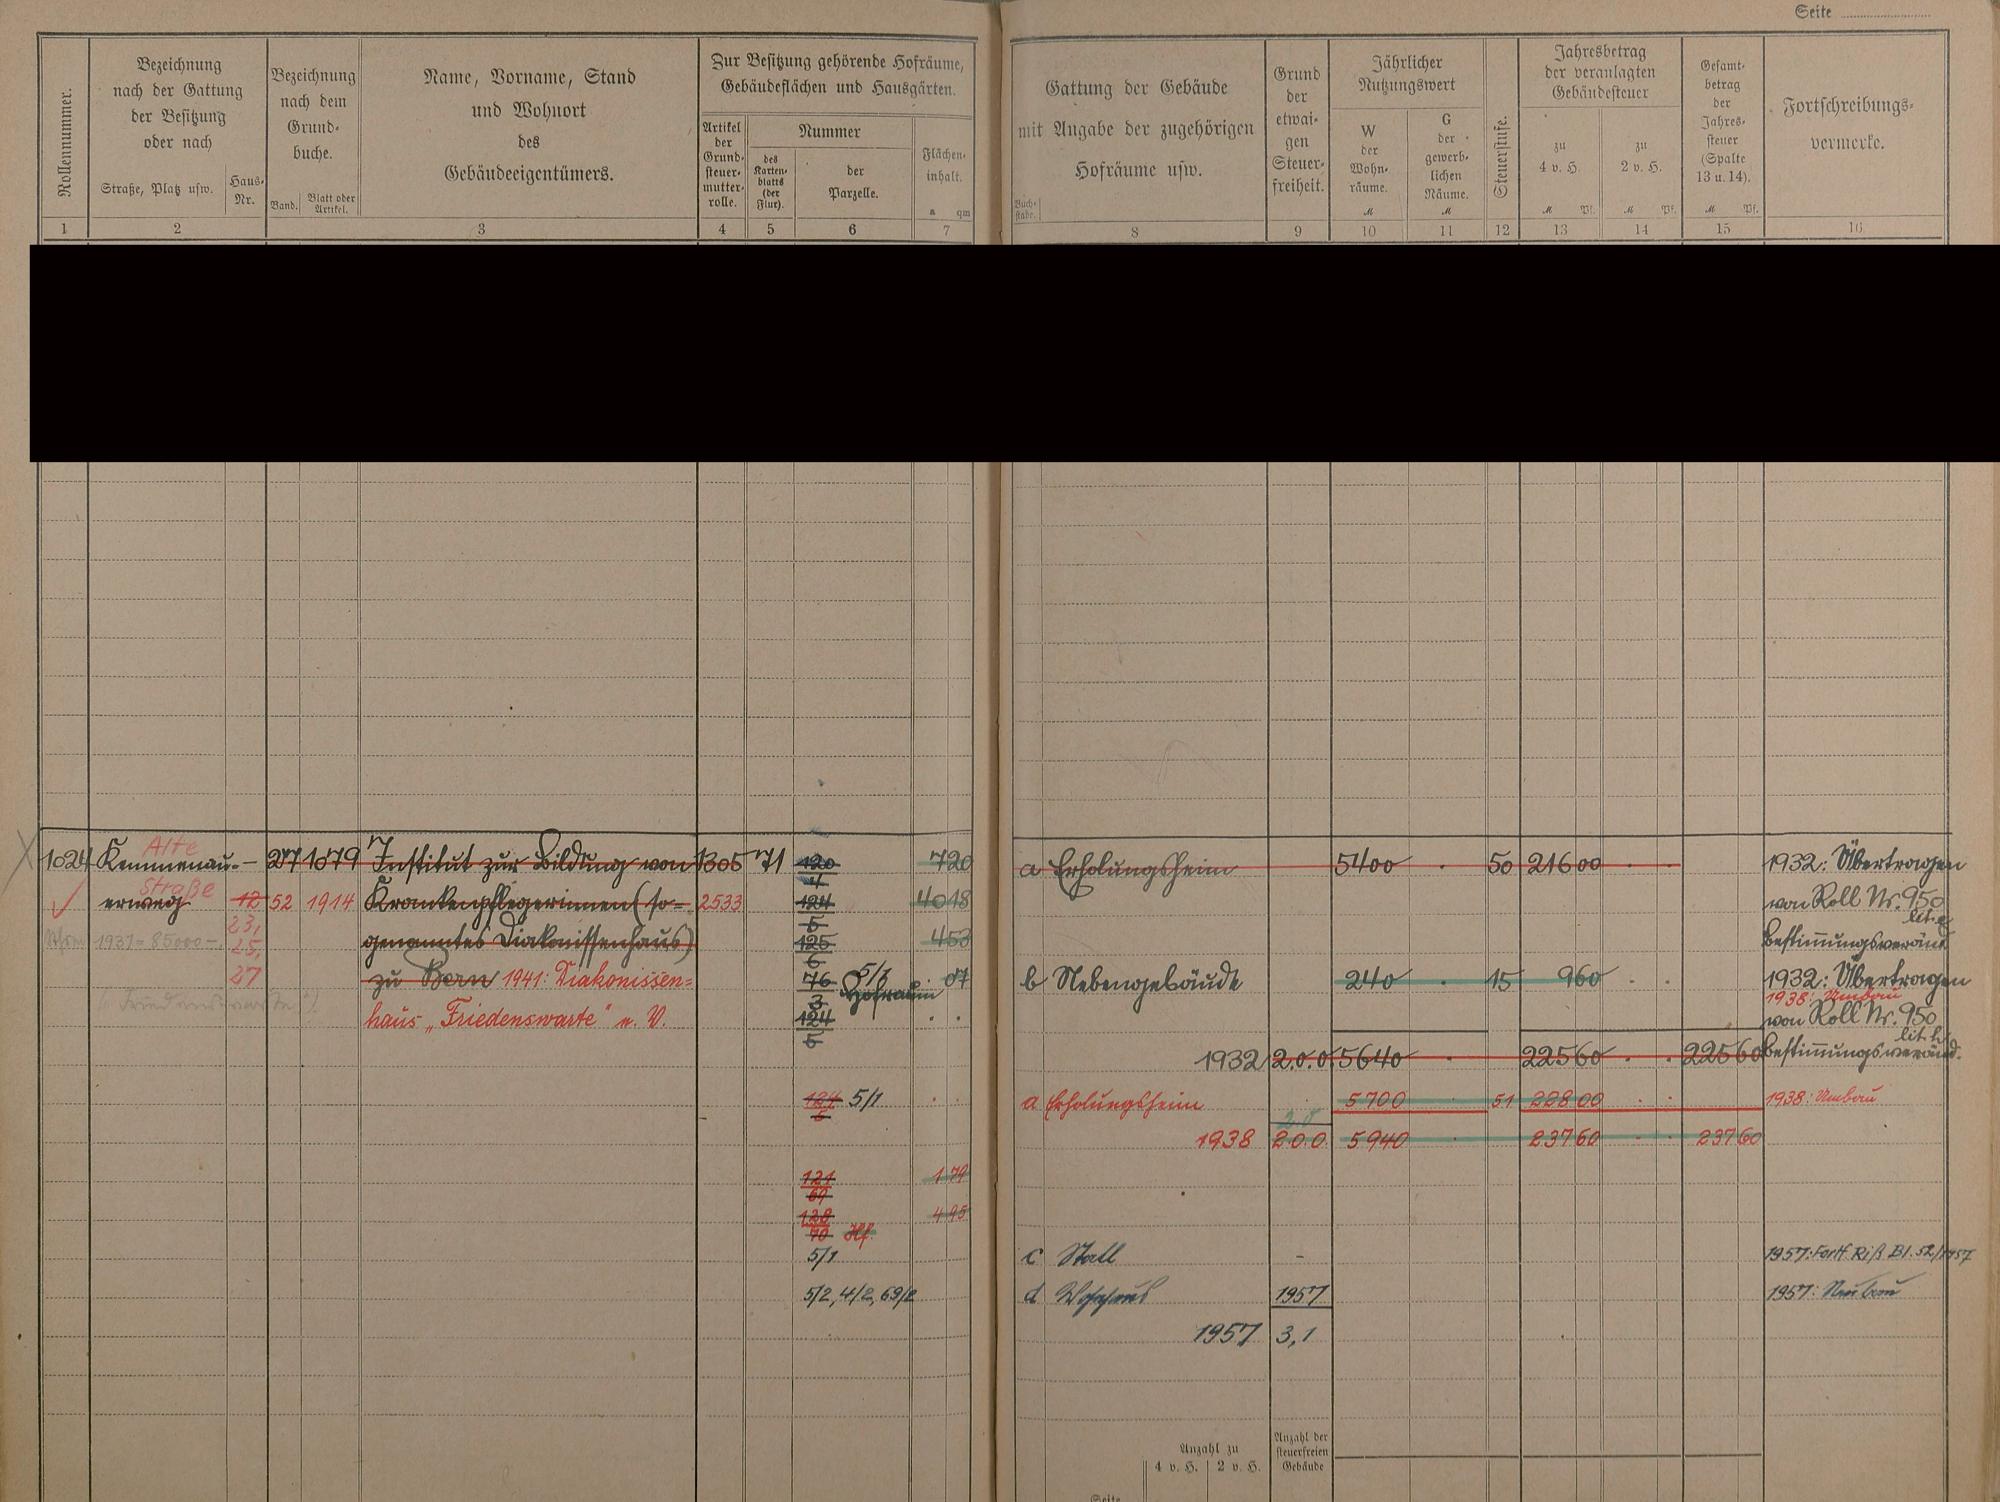 Seite
Rollennummer.
Bezeichnung
nach der Gattung
der Besitzung
oder nach
Straße, Platz usw.
Haus-
Nr.
Bezeichnung
nach dem
Grund-
buche.
Band.
Blatt oder
Artikel.
Name, Vorname, Stand
und Wohnort
des
Gebäudeeigentümers.
Zur Besitzung gehörende Hofräume,
Gebäudeflächen und Hausgärten.
Artikel
der
Grund-
steuer-
mutter-
rolle.
Nummer
des
Karten-
blatts
(der
Flur).
der
Parzelle.
Flächen-
inhalt.
a qm
Buch-
stabe.
Gattung der Gebäude
mit Angabe der zugehörigen
Hofräume usw.
Grund
der
etwai-
gen
Steuer-
freiheit.
Jährlicher
Nutzungswert
W
der
Wohn-
räume.
M
G
der
gewerb-
lichen
Räume.
M
Steuerstufe.
Jahresbetrag
der veranlagten
Gebäudesteuer
zu
4 v. H.
M Pf.
zu
2 v. H.
M Pf.
Gesamt-
betrag
der
Jahres-
steuer
(Spalte
13 u. 14).
M Pf.
Fortschreibungs-
vermerke.
1 2 3 4 5 6 7 8 9 10 11 12 13 14 15 16
Alte
1024 Kemmenau- 27 1079 Institut zur Bildung von 1305 71 120/4 720
Straße
erweg 12 52 1914 Krankenpflegerinnen (so- 2533 124/5 4018
23,
1937 = 85000 25, genanntes Diakonissenhaus) 125/6 453
27 zu Bern 1941: Diakonissen- 76/3 5/3 07
Hofraum
haus „Friedenswarte" e. V. 124/5
5/1
121/69 179
128/70 Hf. 495
5/1
5/2, 4/2, 69/2
a Erholungsheim 5400 50 216 00 1932: Übertragen
von Roll Nr. 950
lit. a
Bestimmungsveränd.
b Nebengebäude 240 15 9 60 1932: Übertragen
1938: Umbau
von Roll Nr. 950
lit. b
1932 2.0.0. 5640 225 60 225 60 Bestimmungsveränd.
a Erholungsheim 5700 51 228 00 1938: Umbau
2.0
1938 2.0.0. 5940 237 60 237 60
c Stall - 1957: Fortf. Riß Bl. 52/1957
d Wohnhaus 1957 1957: Neubau
1957 3,1
Anzahl zu
4 v. H. 2 v. H.
Anzahl der
steuerfreien
Gebäude
Seite